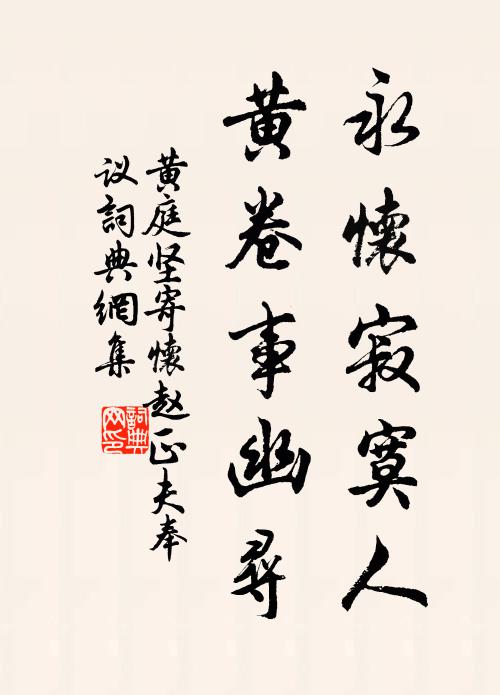 永懷寂寞人
黄卷事幽尋
黄庭坚寄懷赵正夫奉
议詞典網集
詞典
网印